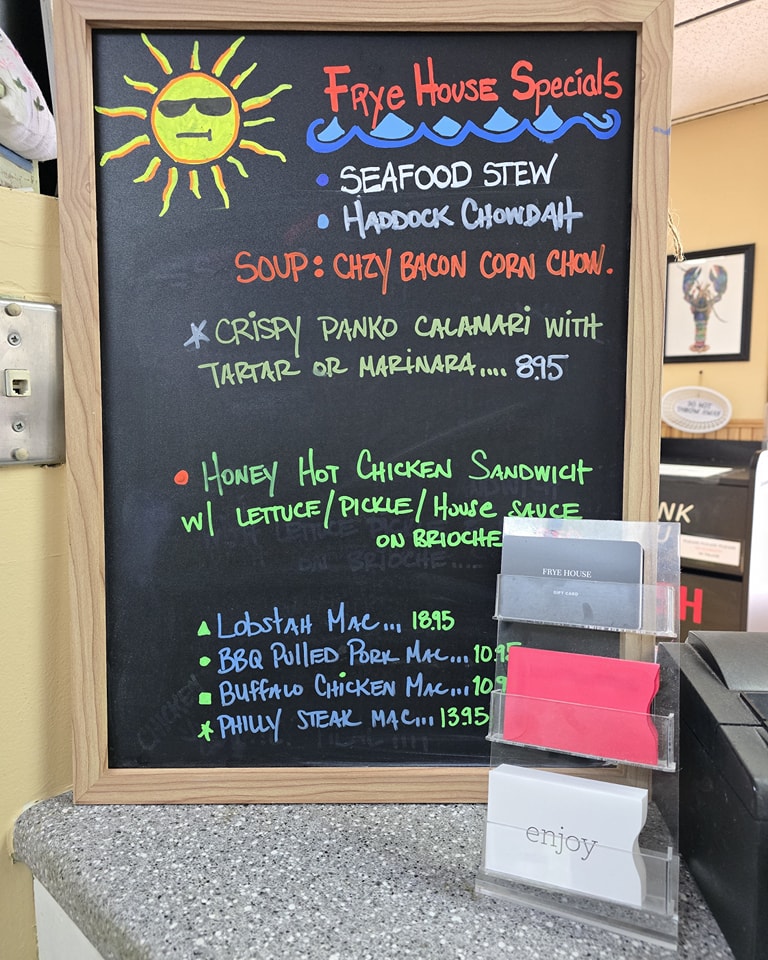 Frye House Specials
• SEAFOOD STEW
• HADDOCK CHOWDAH
SOUP: CHZY BACON CORN CHOW.
CRISPY PANKO CALAMARI WITH
TARTAR OR MARINARA.... 8.95
• HONEY HOT CHICKEN SANDWICH
W/ LETTUCE/PICKLE/HOUSE SAUCE
ON BRIOCHE
LOBSTAH MAC... 18.95
• BBQ PULLED PORK MAC... 10.95
BUFFALO CHICKEN MAC... 10.9
PHILLY STEAK MAC... 13.95
FRYE HOUSE
GIFT CARD
enjoy